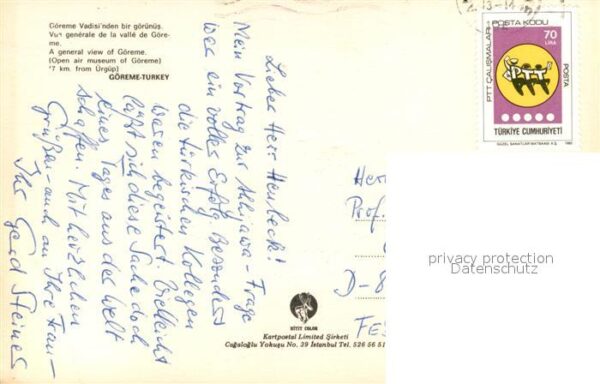 Göreme Vadisi'nden bir görünüş.
Vue genérale de la vallé de Göre-
me.
A general view of Göreme.
(Open air museum of Göreme)
"7 km. from Ürgüp)
GÖREME-TURKEY
Lieber Herr
Mein Vortrag zur Ahhijawa-Frage
war ein voller Erfolg. Besonders
die türkischen Kollegen
waren begeistert. Vielleicht
läßt sich diese Sache doch
eines Tages aus der Welt
schaffen. Mit herzlichen
Grüßen - auch an Ihre Frau -
Ihr Gerd Steiner
PTT ÇALIŞMALARI
POSTA KODU
70
LİRA
PTT
POSTA
TÜRKİYE CUMHURİYETİ
GÜZEL SANATLAR MATBAASI A.Ş.
1985
Herr
Prof.
D-8
privacy protection
Datenschutz
HİTİT COLOR
Kartpostal Limited Şirketi
Cağaloğlu Yokuşu No. 29 İstanbul Tel. 526 56 51